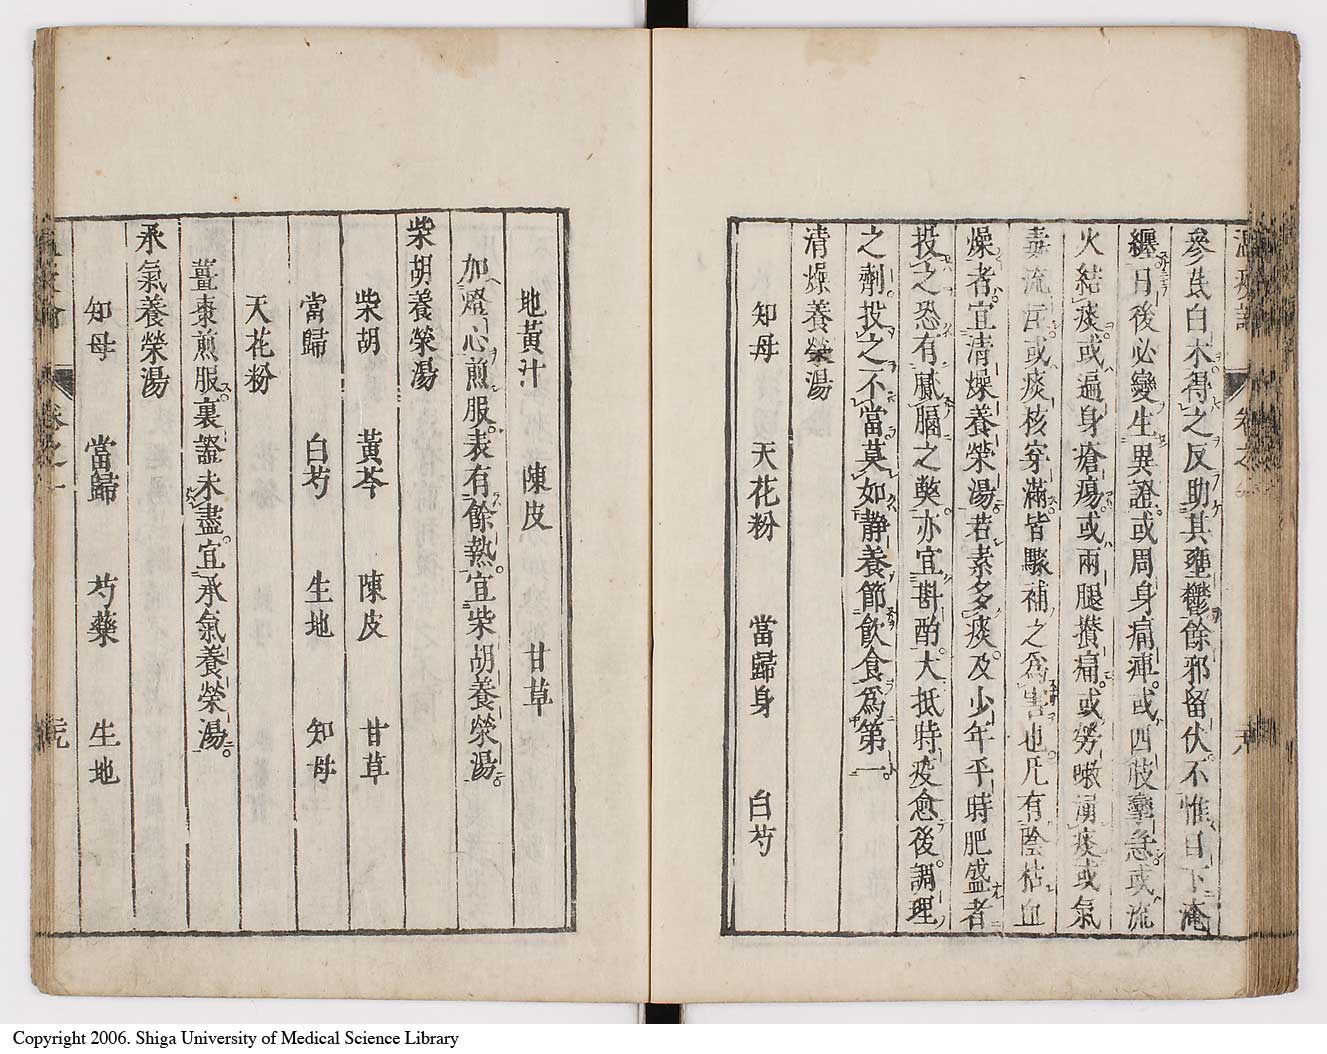 參芪白术得之反助其壅鬱餘邪留伏不惟目下淹
纏日後必變生異證或周身痛痺或四肢攣急或流
火結痰或遍身瘡瘍或兩腿攢痛或勞嗽湧痰或氣
毒流注或痰核穿漏皆驟補之爲害也凡有陰枯血
燥者宜清燥養榮湯若素多痰及少年平時肥盛者
投之恐有膩膈之弊亦宜斟酌大抵時疫愈後調理
之劑投之不當莫如靜養節飲食爲第一
清燥養榮湯
知母 天花粉 當歸身 白芍
地黃汁 陳皮 甘草
加燈心煎服表有餘熱宜柴胡養榮湯
柴胡養榮湯
柴胡 黃芩 陳皮 甘草
當歸 白芍 生地 知母
天花粉
薑棗煎服裏證未盡宜承氣養榮湯
承氣養榮湯
知母 當歸 芍藥 生地
Copyright 2006. Shiga University of Medical Science Library